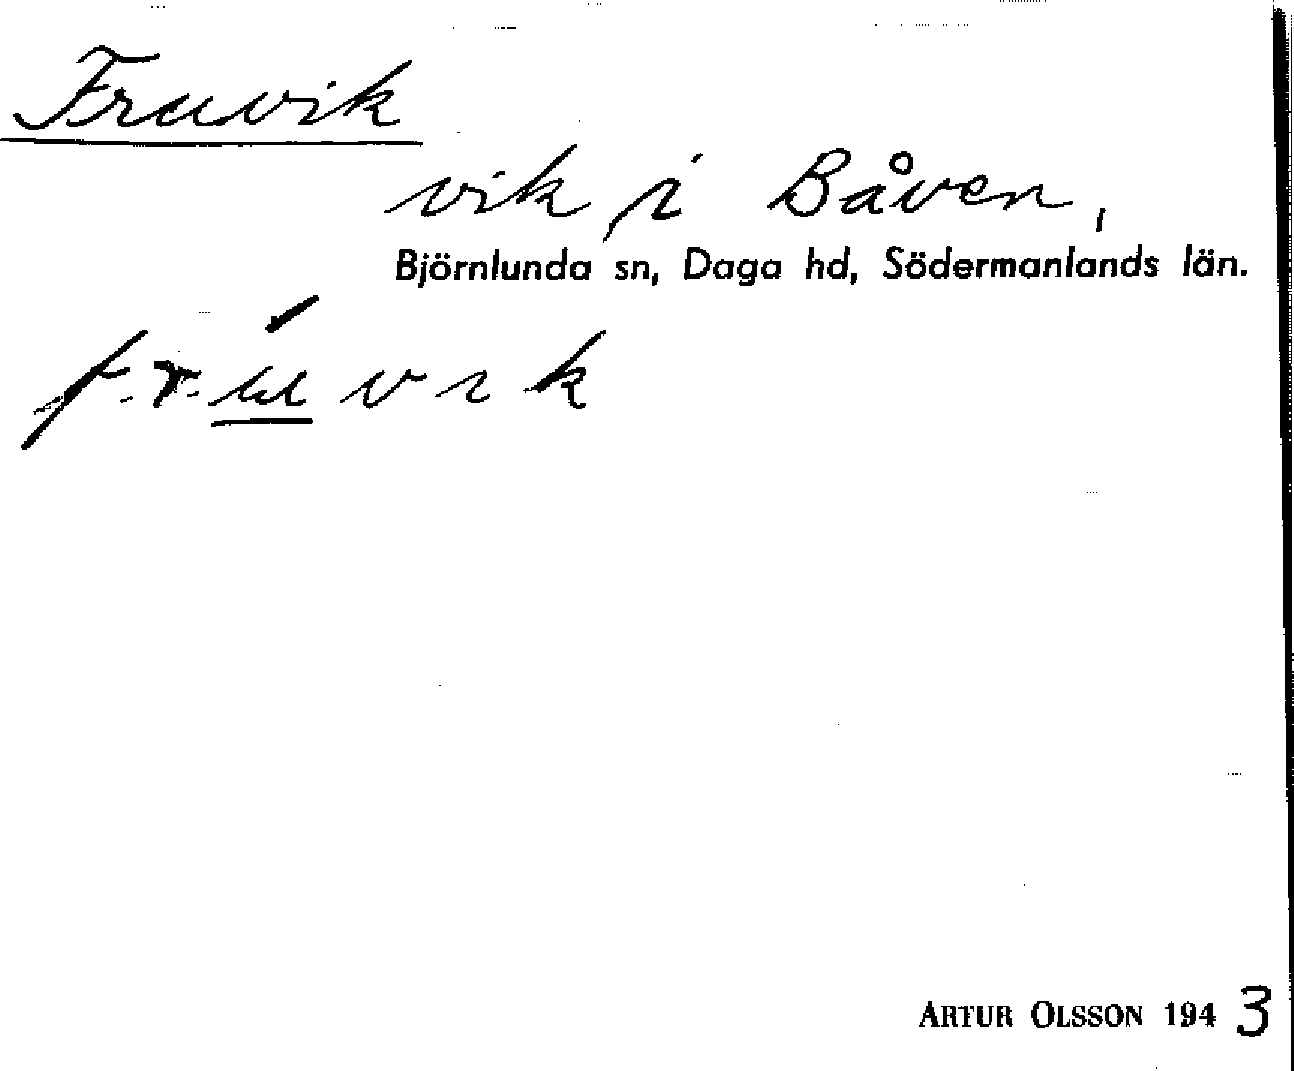 Fruvik
vik i Båven,
Björnlunda sn, Daga hd, Södermanlands län.
ARTUR OLSSON 1943